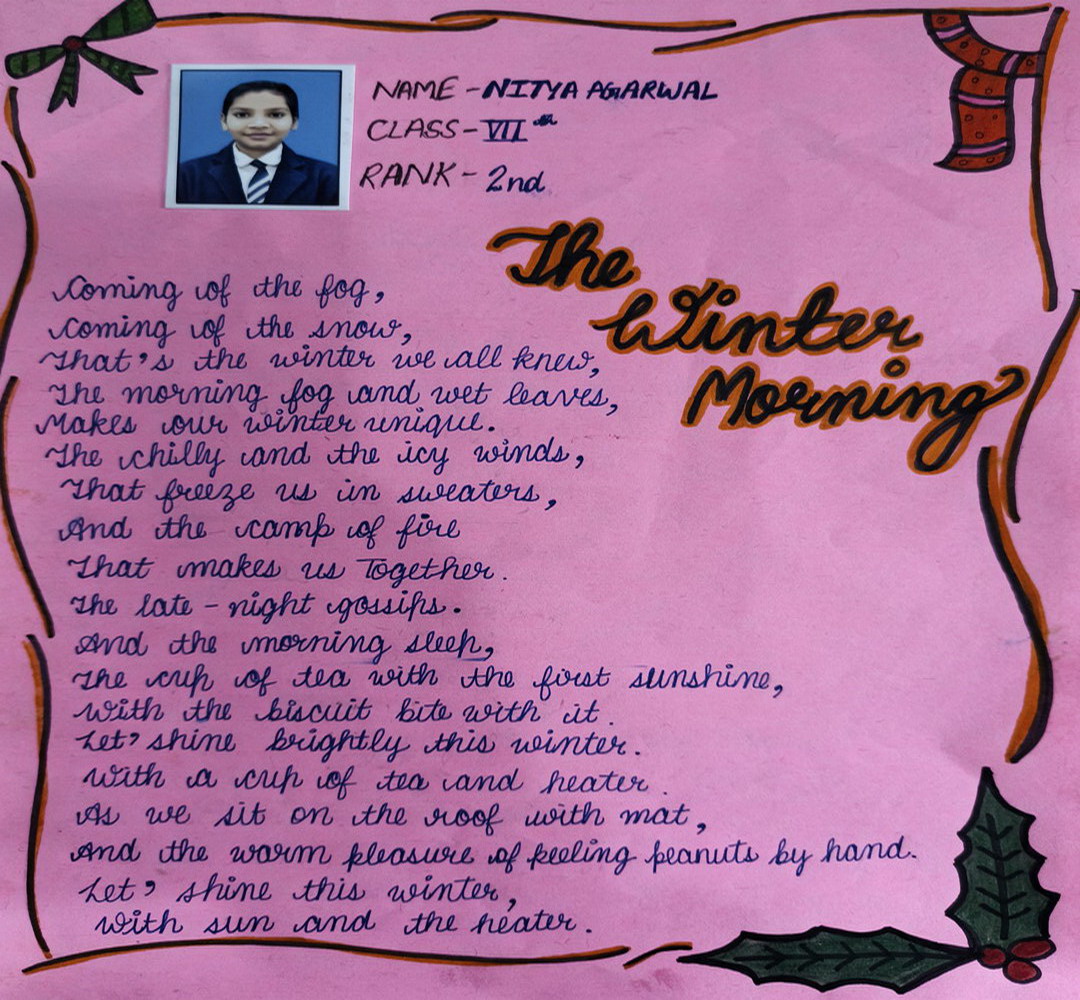 NAME - NITYA AGARWAL
CLASS - VIIth
RANK - 2nd
The
Winter
Morning
Coming of the fog,
Coming of the snow,
That's the winter we all knew,
The morning fog and wet leaves,
Makes our winter unique.
The chilly and the icy winds,
That freeze us in sweaters,
And the camp of fire
That makes us Together.
The late - night gossips.
And the morning sleep,
The cup of tea with the first sunshine,
With the biscuit bite with it.
Let' shine brightly this winter.
With a cup of tea and heater.
As we sit on the roof with mat,
And the warm pleasure of peeling peanuts by hand.
Let' shine this winter,
With sun and the heater.